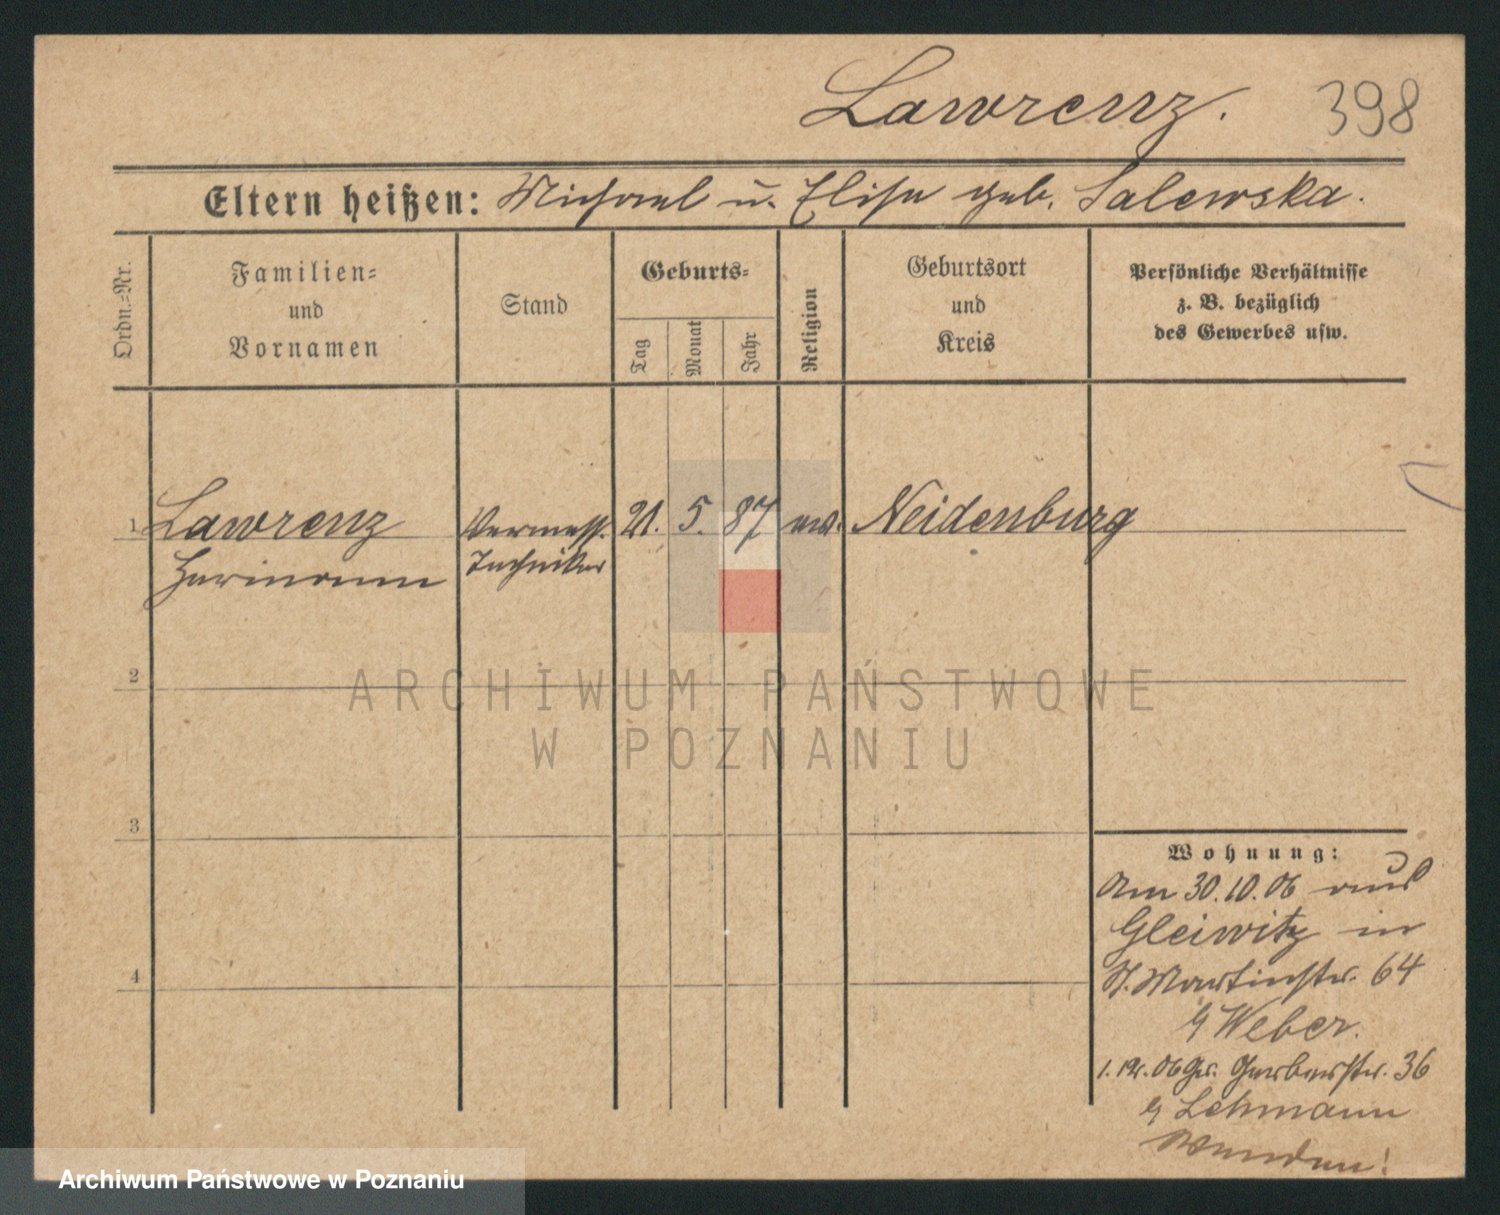 Lawrenz. 398
Eltern heißen: Michael u. Elise geb. Salewska.
Ordn.-Nr.
Familien-
und
Vornamen
Stand
Geburts-
Tag
Monat
Jahr
Religion
Geburtsort
und
Kreis
Persönliche Verhältnisse
z. B. bezüglich
des Gewerbes usw.
1 Lawrenz Vermess. 21. 5. 87 ev. Neidenburg
Hermann Techniker
2
ARCHIWUM PAŃSTWOWE
W POZNANIU
3
4
Wohnung:
Am 30.10.06 aus
Gleiwitz in
St. Martinstr. 64
b/ Weber.
1.12.06 Gr. Gerberstr. 36
b/ Lehmann
Archiwum Państwowe w Poznaniu